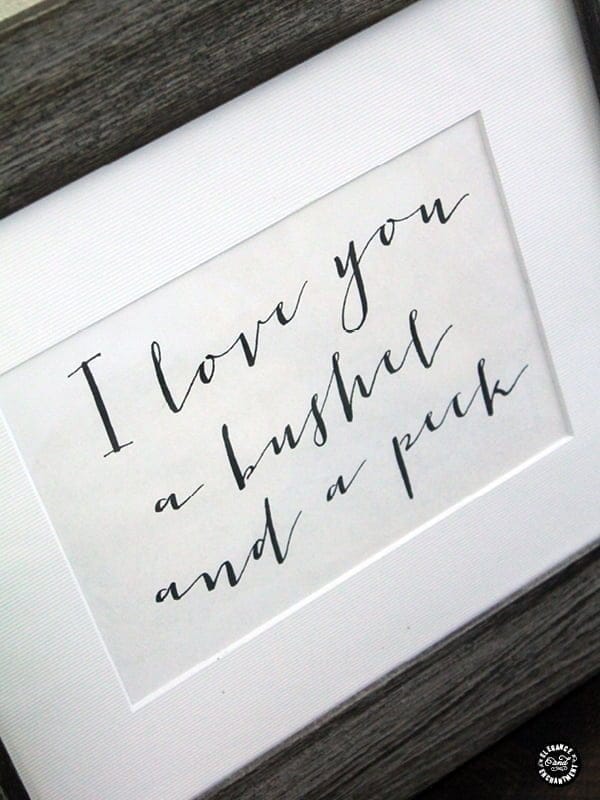 I love you
a bushel
and a peck
ELEGANCE
and
ENCHANTMENT